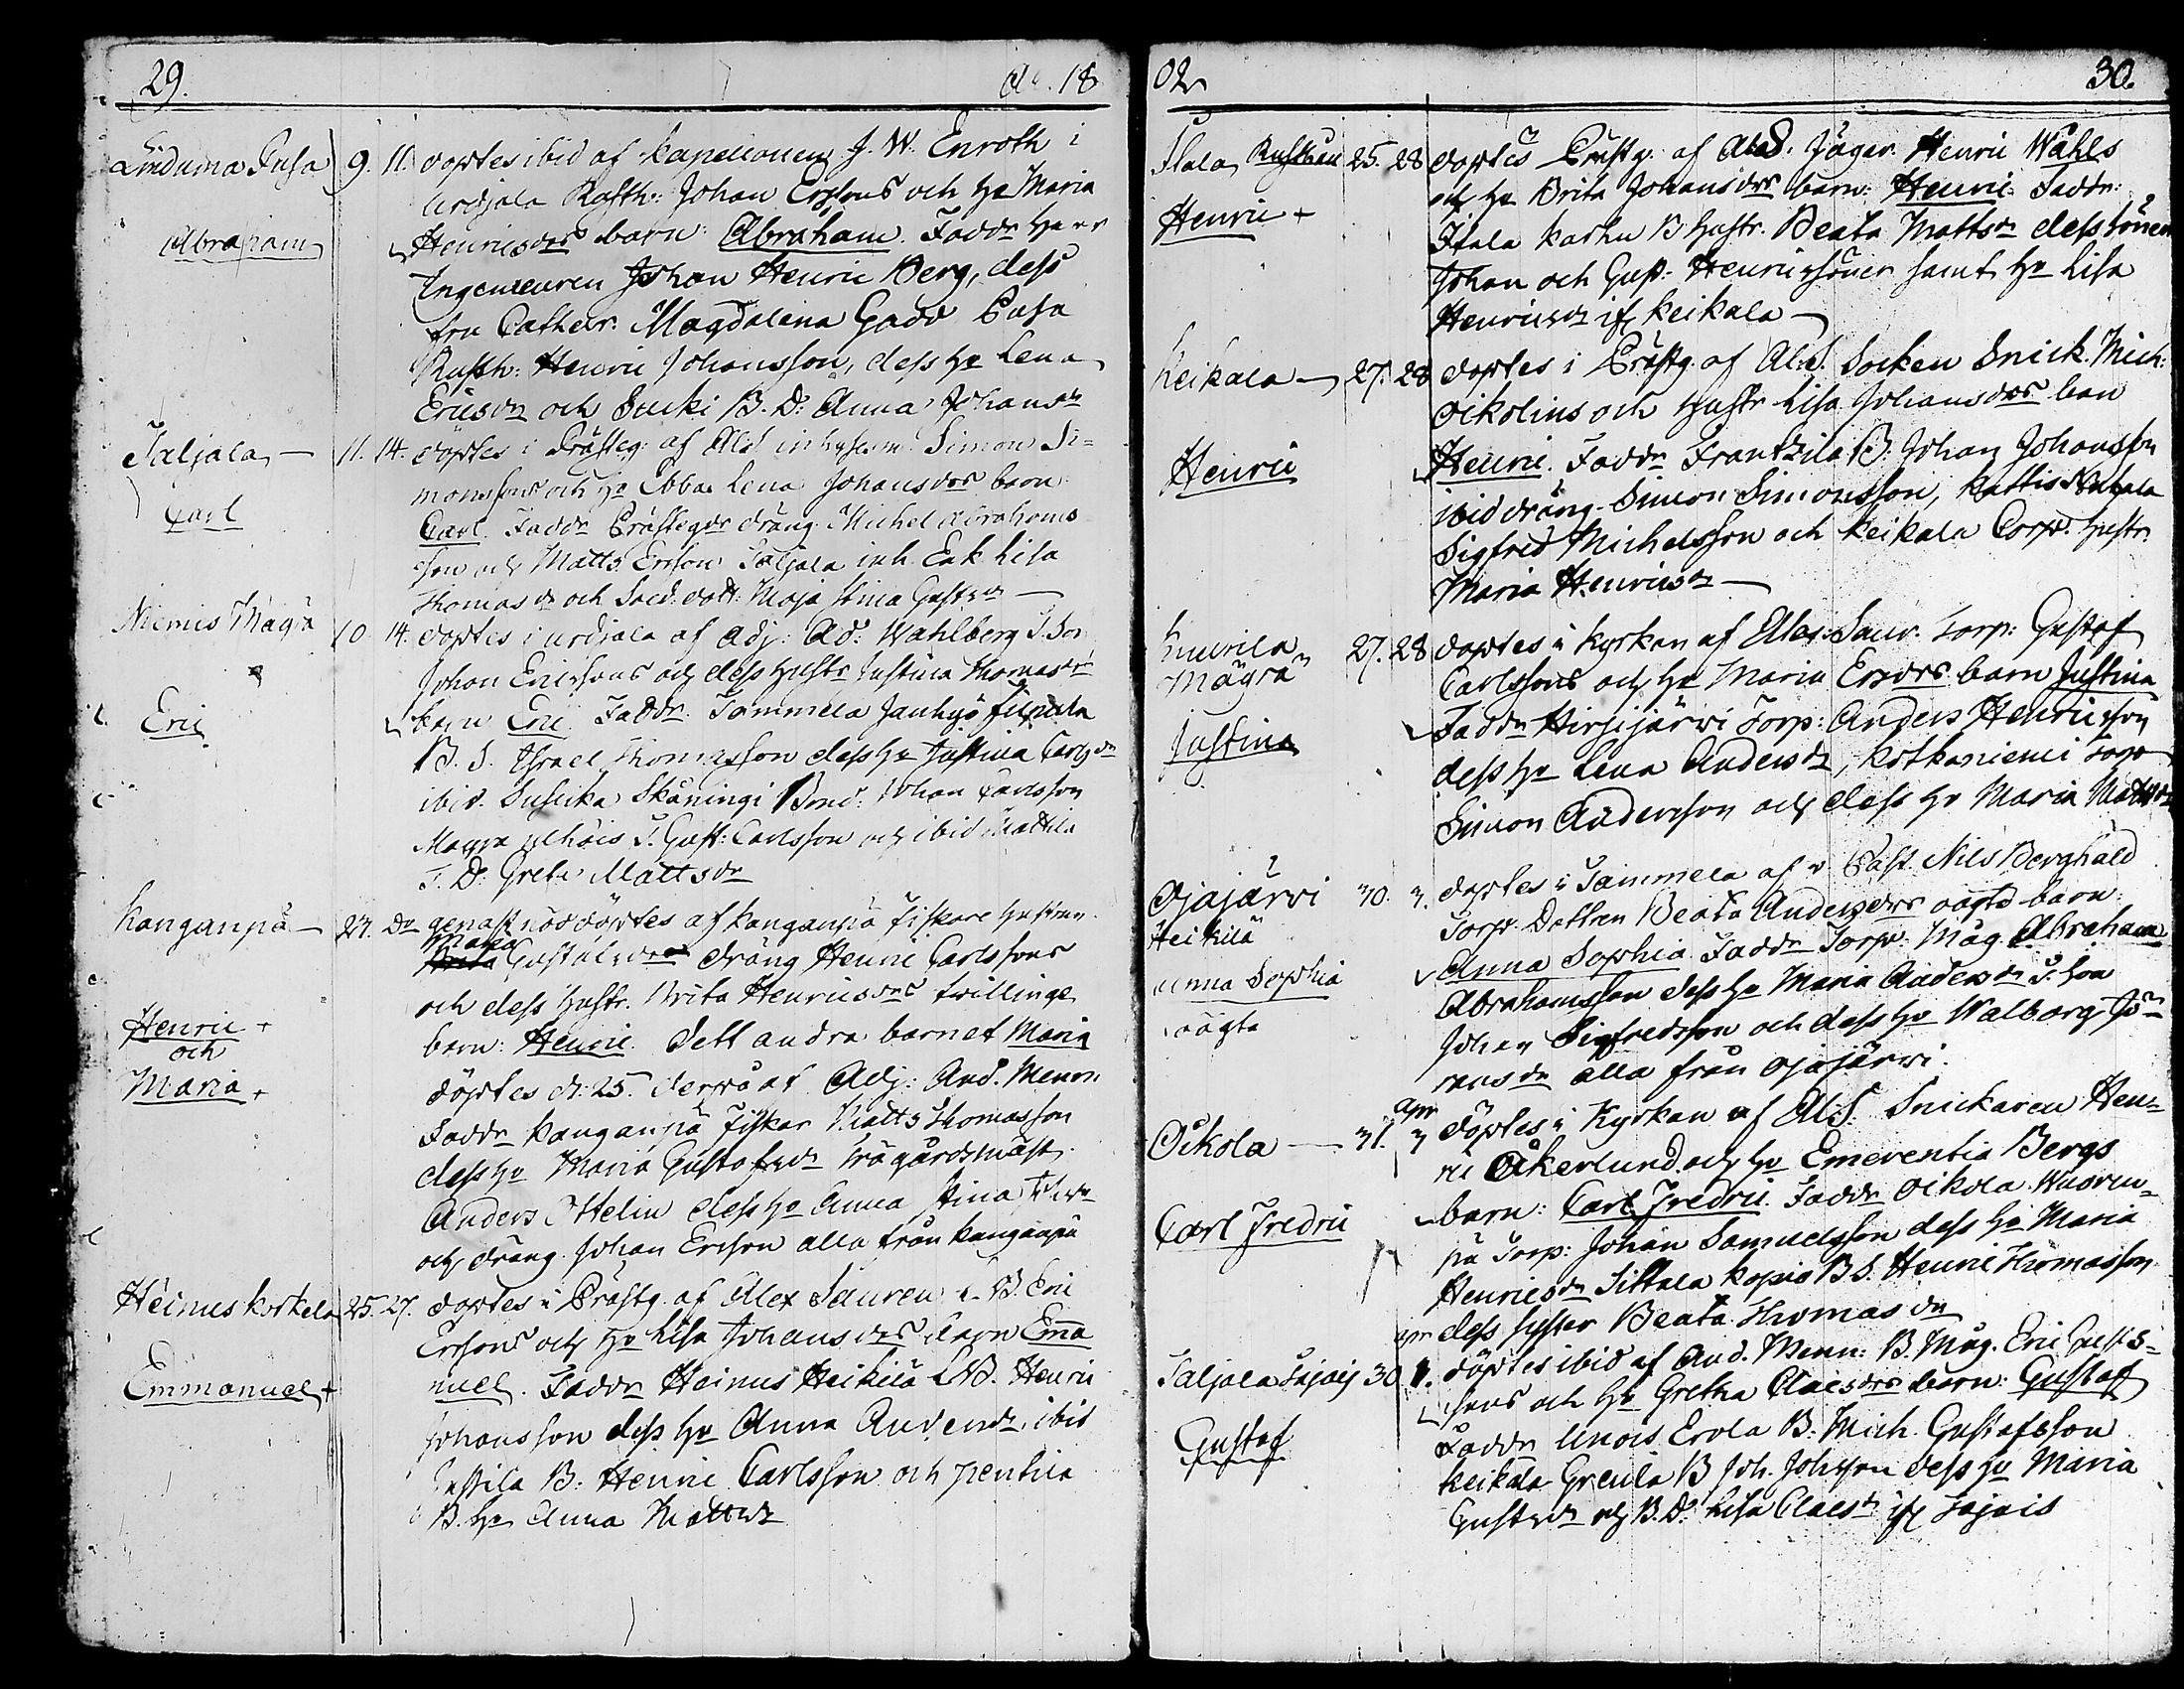 29. Ao. 18
Linduma Pusa 9. 11. döptes ibid af kapellanen J. W. Enroth i
Urdjala Rusth: Johan Ersons och Ho Maria
Abraham Henricsdrs barn: Abraham. Faddr Herr
Ingenieuren Johan Henric Berg, dess
fru Cathar. Magdalena Gadd Pusa
Rusth: Henric Johansson, dess Ho Lena
Ericsdr och Sucki B. D: Anna Johansdr
Taljala 11. 14. döptes i Prästeg: af AlS inhysesm. Simon Si=
monssons och Ho Ebba Lena Johansdrs barn
Carl Carl. Faddr Prästegdr dräng Michel Abrahams
son och Matts Ersson Taljala inh. Enk. Lisa
Thomasdr och Sold. dott: Maja Stina Gustsdr
Niemis Mägrä 10 14. döptes i Urdjala af Adj: Ad: Wahlberg T. Son
Johan Ericssons och dess Hustr Justina Thomasdrs
Eric barn Eric. Faddr. Tammela Jankyö
B. S. Israel Thomasson dess Ho Justina Carlsdr
ibid. Susicka Skåningi Bond: Johan Carlsson
Mägrä T. Gust: Carlsson och ibid Mattila
T. D: Greta Mattsdr
Kanganpä 24. Do genast nöddöptes af Kanganpä Fiskare hustrun
Maria Gustafsdr dräng Henric Carlssons
och dess Hustr. Brita Henricsdrs twillinge
Henric + barn: Henric. Dett andra barnet Maria
och
Maria + döptes d: 25. derpå af Adj: And. Menon
Faddr Kanganpä Fiskar Matts Thomasson
dess Ho Maria Gustafsdr Trägårdsmäst.
Anders Ottelin dess Ho Anna Stina
och dräng Johan Ersson alla från Kanganpä
Heinus Korkela 25. 27. döptes i Prästg. af Alex Sauren L. B. Eric
Erssons och Ho Lisa Johansdrs barn Ema
Emmanuel + nuel. Faddr Heinus Heikilä LB. Henric
Johansson dess Ho Anna Andersdr, ibid
B: Henric Carlsson och Pentila
B. Ho Anna Mattsdr
02 30.
Itala 25. 28 döptes Prästg. af AlexS. Jägar Henric Wahls
och Ho Brita Johansdrs barn: Henric Faddr:
Henric + Itala Karhu B Hustr. Beata Mattsdr dess söner
Johan och Gust: Henricssöner samt Ho Lisa
Henricsdr if Keikala
Keikala 27. 28 döptes i Prästg. af AlS. Socken Snick. Mich:
Oikolins och Hustr Lisa Johansdrs ban
Henric Henric. Faddr Frantzila B. Johan Johansson
ibid dräng Simon Simonsson, Kattis
Sigfred Michelsson och Keikala Corp. Hustr.
Maria Henricsdr
Mägrä 27. 28 döptes i Kyrkan af Alex: Saur. Torp: Gustaf
Carlssons och Ho Maria Ersdrs barn Justina
Justina Faddr Hirsijärwi Torp: Anders Henricsson
dess Ho Lena Andersdr, Kotkaniemi Torp
Simon Andersson och dess Ho Maria Mattsdr
Ojajärwi 30. döptes i Tammela af v Past. Nils Berghäld
Heikilä Torp. Dottren Beata Andersdrs oägta barn:
Anna Sophia Anna Sophia Faddr Torp. Måg. Abraham
oägta Abrahamsson dess Ho Maria Andersdr T. Son
Johan Sigfredsson och dess Ho Walborg Jö=
ransdr alla från Ojajärwi.
Oikola 31. apr 3 döptes i Kyrkan af AlS. Snickaren Hen=
ric Åkerlund och Ho Emerentia Bergs
Carl Fredric barn: Carl Fredric. Faddr Oikola Wuoren=
pä Torp: Johan Samuelsson dess Ho Maria
Henricsdr Sittala Kopio B S. Henric Thomasson
dess syster Beata Thomasdr
Taljala 30 apr 1. döptes ibid af And. Menn: B. Måg. Eric Gusts=
sons och Ho Gretha Claesdrs barn: Gustaf
Gustaf Faddr Unois Erola B. Mich. Gustafsson
Keikala Greula B Joh. Johsson dess Ho Maria
Gustsdr och B. D: Lisa Claesdr if Tojois